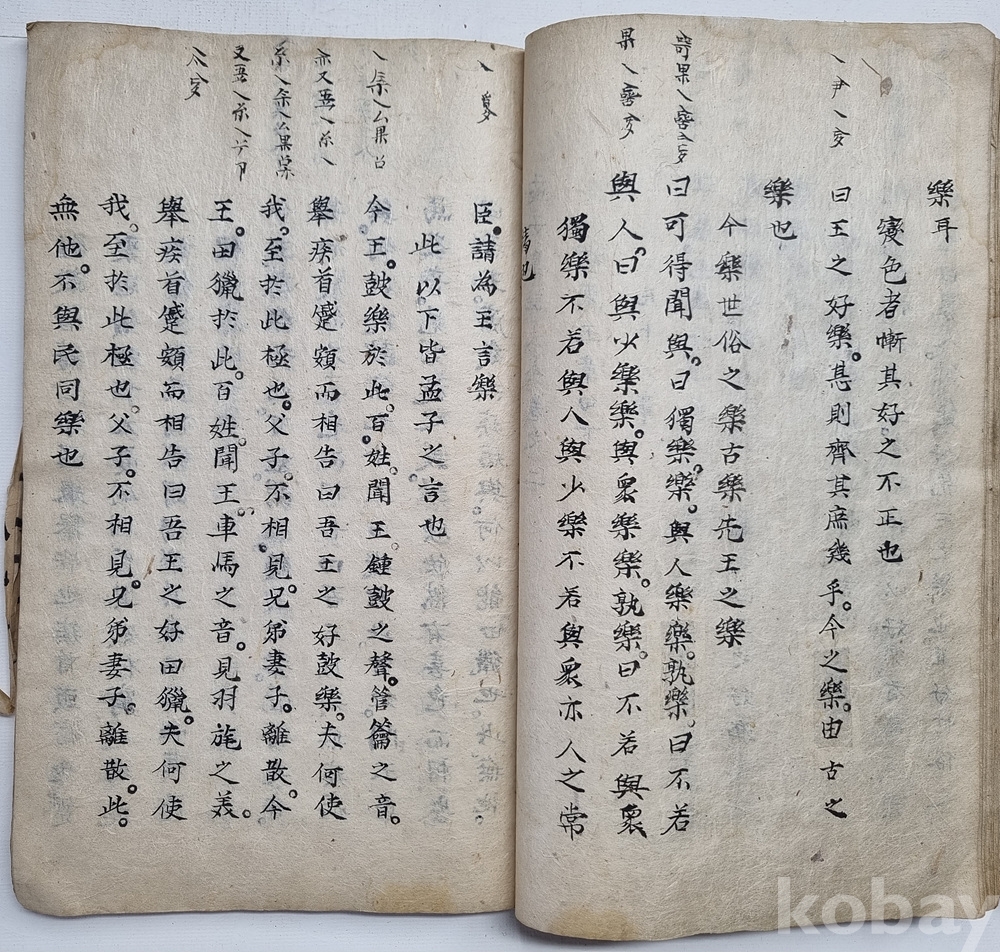 樂耳
變色者慚其好之不正也
曰王之好樂。甚則齊其庶幾乎。今之樂。由古之
樂也
今樂世俗之樂古樂先王之樂
曰可得聞與。曰獨樂樂。與人樂樂。孰樂。曰不若
與人。曰與少樂樂。與衆樂樂。孰樂。曰不若與衆
獨樂不若與人與少樂不若與衆亦人之常
情也
臣。請為王言樂
此以下皆孟子之言也
今王。鼓樂於此。百姓。聞王鍾鼓之聲。管籥之音。
舉疾首蹙頞而相告曰吾王之好鼓樂。夫何使
我。至於此極也。父子。不相見。兄弟妻子。離散。今
王。田獵於此。百姓。聞王。車馬之音。見羽旄之美。
舉疾首蹙頞而相告曰吾王之好田獵。夫何使
我。至於此極也。父子。不相見。兄弟妻子。離散。此。
無他。不與民同樂也
kobay